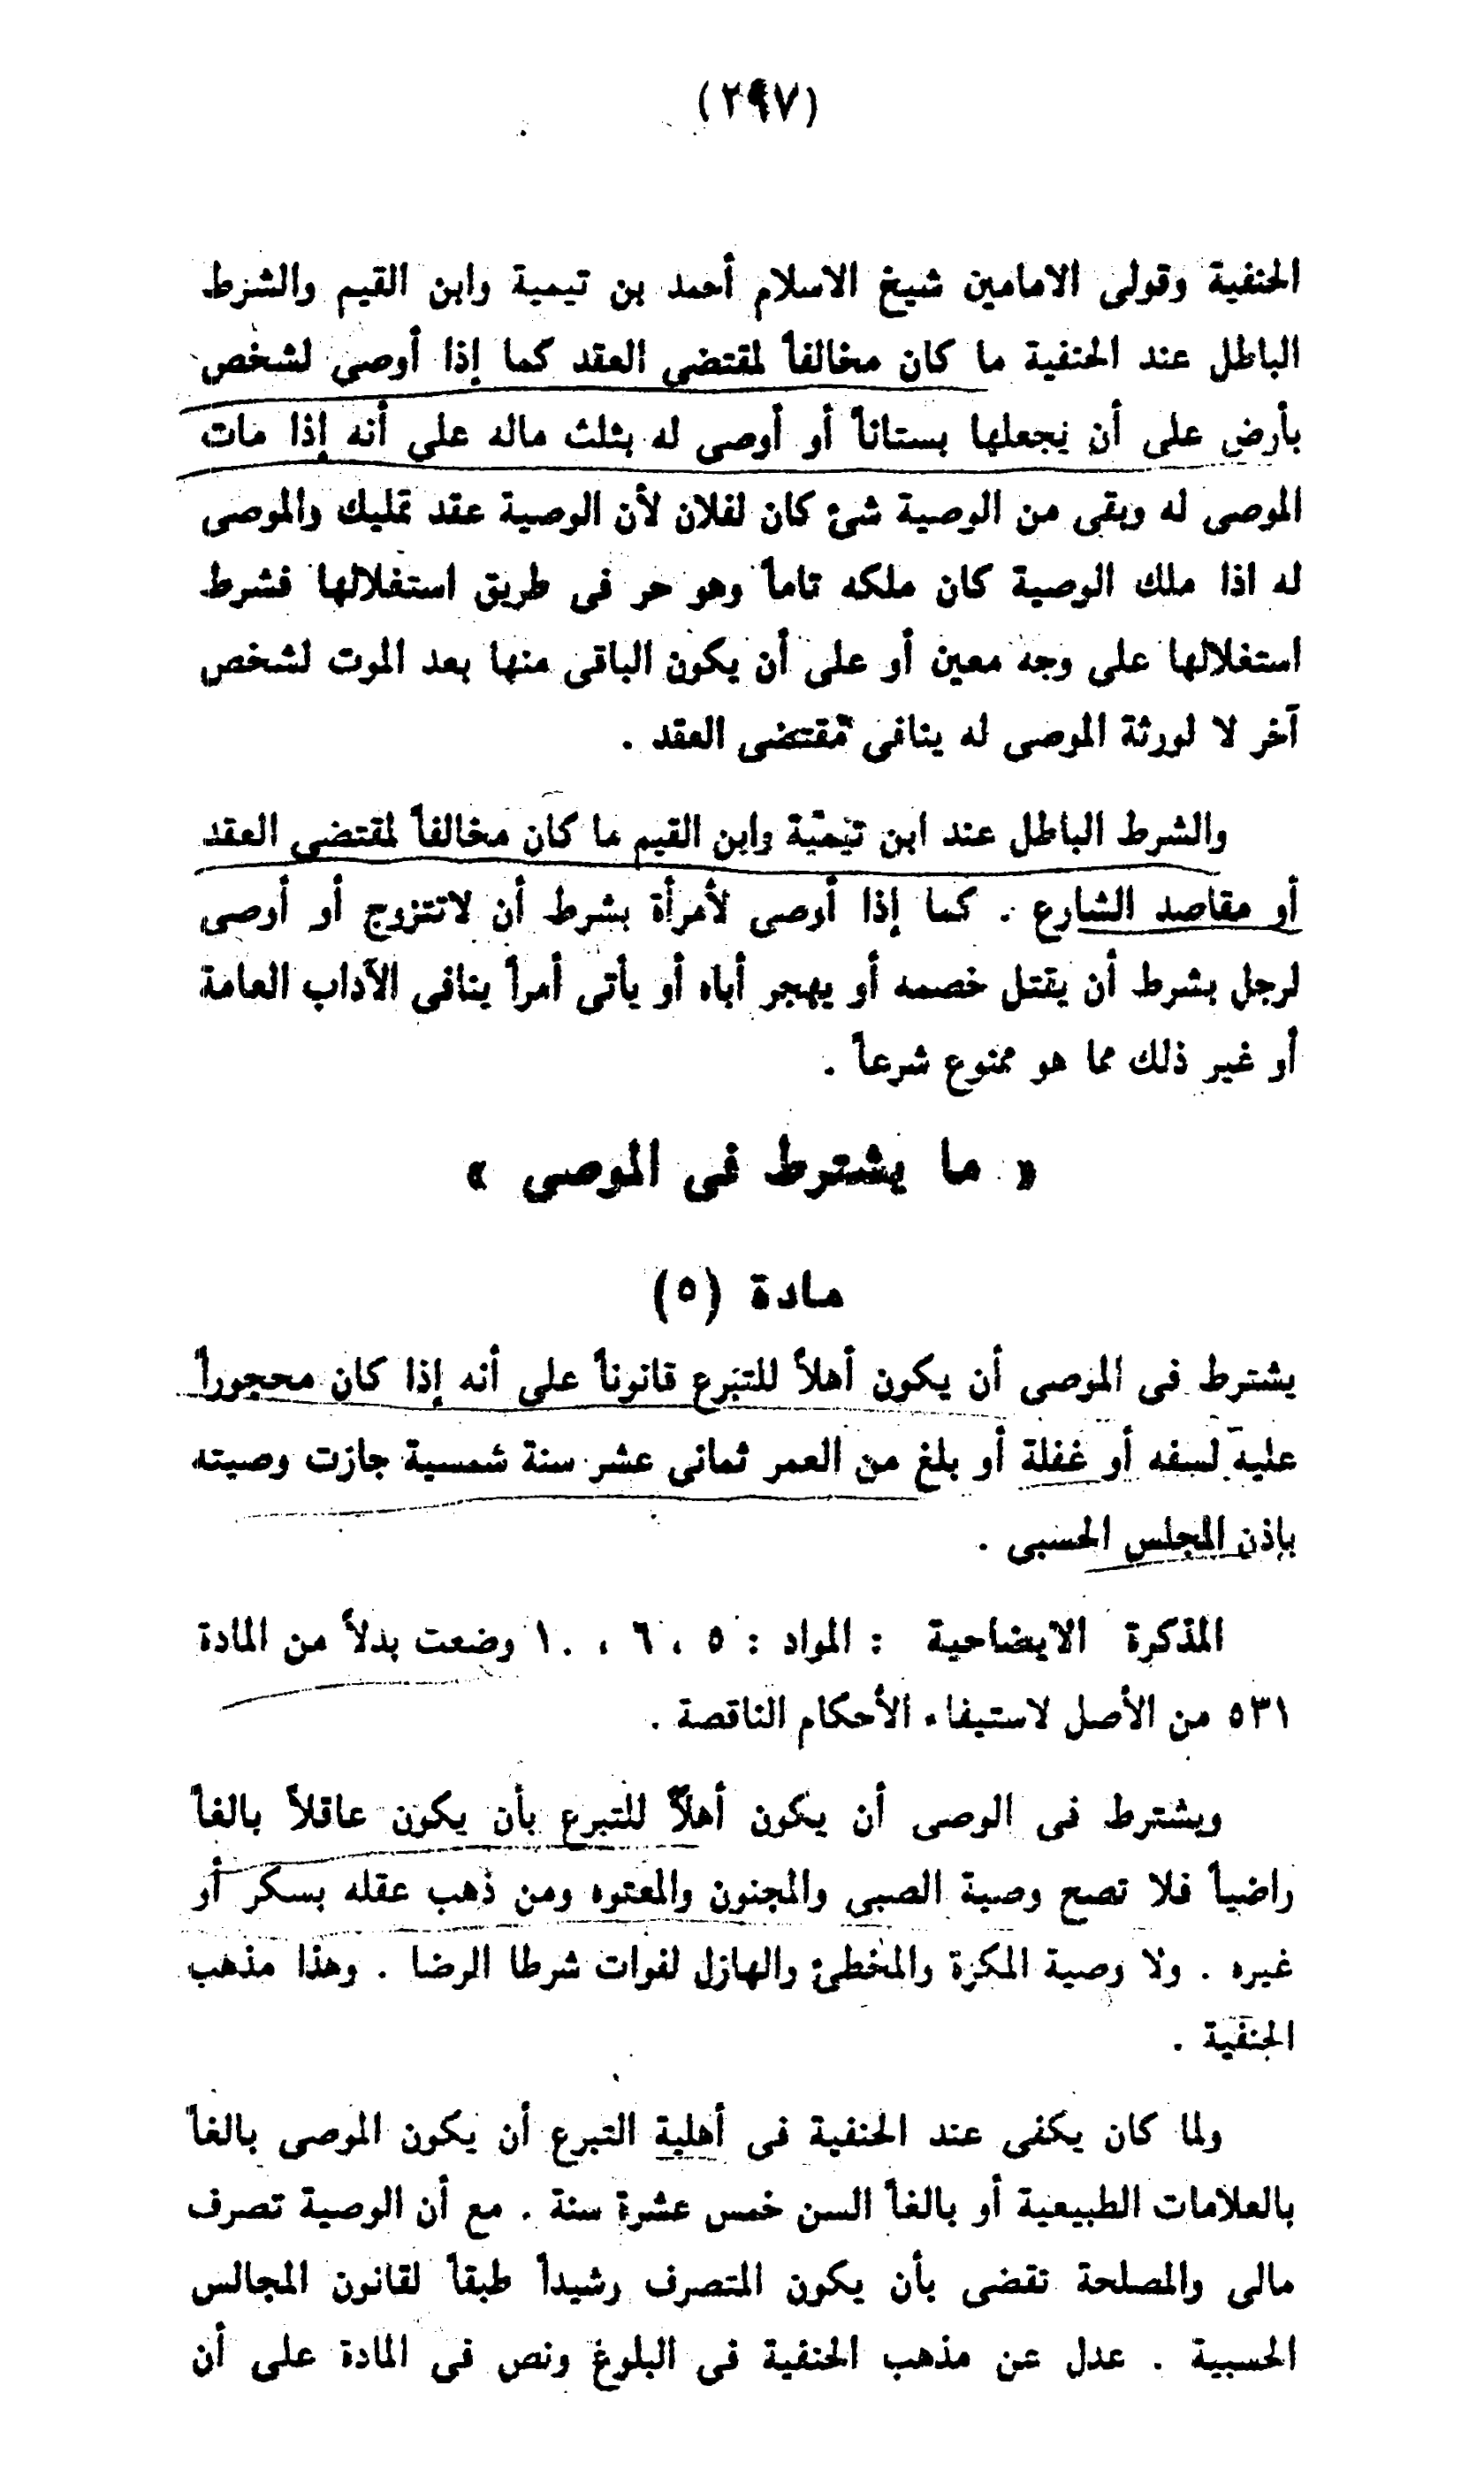 (٢٩٧)
الحنفية وقولى الامامين شيخ الاسلام أحمد بن تيمية وابن القيم والشرط
الباطل عند الحنفية ما كان مخالفاً لمقتضى العقد كما إذا أوصى لشخص
بأرض على أن يجعلها بستاناً أو أوصى له بثلث ماله على أنه إذا مات
الموصى له وبقى من الوصية شئ كان لفلان لأن الوصية عقد تمليك والموصى
له اذا ملك الوصية كان ملكه تاماً وهو حر فى طريق استغلالها فشرط
استغلالها على وجه معين أو على أن يكون الباقى منها بعد الموت لشخص
آخر لا لورثة الموصى له ينافى مقتضى العقد .
والشرط الباطل عند ابن تيمية وابن القيم ما كان مخالفاً لمقتضى العقد
أو مقاصد الشارع . كما إذا أوصى لأمرأة بشرط أن لاتتزوج أو أوصى
لرجل بشرط أن يقتل خصمه أو يهجر أباه أو يأتى أمراً ينافى الآداب العامة
أو غير ذلك مما هو ممنوع شرعاً .
« ما يشترط فى الموصى »
مادة (٥)
يشترط فى الموصى أن يكون أهلاً للتبرع قانوناً على أنه إذا كان محجوراً
عليه لسفه أو غفلة أو بلغ من العمر ثمانى عشر سنة شمسية جازت وصيته
بإذن المجلس الحسبى .
المذكرة الايضاحية : المواد : ٥ ، ٦ ، ١٠ وضعت بدلاً من المادة
٥٣١ من الأصل لاستيفاء الأحكام الناقصة .
ويشترط فى الوصى أن يكون أهلاً للتبرع بأن يكون عاقلاً بالغاً
راضياً فلا تصح وصية الصبى والمجنون والمعتوه ومن ذهب عقله بسكر أو
غيره . ولا وصية المكرة والمخطئ والهازل لفوات شرطا الرضا . وهذا مذهب
الحنفية .
ولما كان يكفى عند الحنفية فى أهلية التبرع أن يكون الموصى بالغاً
بالعلامات الطبيعية أو بالغاً السن خمس عشرة سنة . مع أن الوصية تصرف
مالى والمصلحة تقضى بأن يكون المتصرف رشيداً طبقاً لقانون المجالس
الحسبية . عدل عن مذهب الحنفية فى البلوغ ونص فى المادة على أن